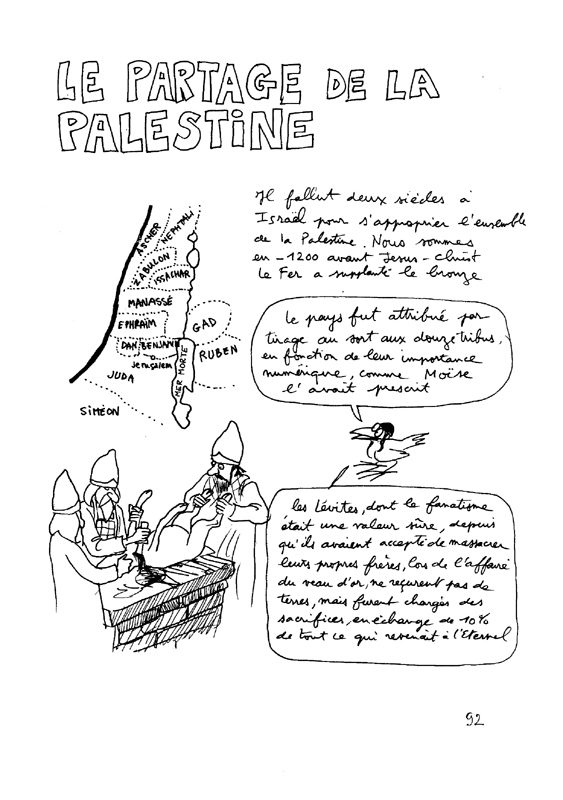 LE PARTAGE DE LA
PALESTiNE
Il fallut deux siècles à
Israël pour s'approprier l'ensemble
de la Palestine. Nous sommes
en -1200 avant Jesus-Christ
Le Fer a supplanté le bronze
ASCHER
NEPHTALI
ZABULON
ISSACHAR
MANASSÉ
EPHRAÏM
GAD
DAN BENJAMIN
Jerusalem
RUBEN
MER MORTE
JUDA
SiMÉON
Le pays fut attribué par
tirage au sort aux douze tribus,
en fonction de leur importance
numérique, comme Moïse
l'avait prescrit
les Lévites, dont le fanatisme
était une valeur sûre, depuis
qu'ils avaient accepté de massacrer
leurs propres frères, lors de l'affaire
du veau d'or, ne reçurent pas de
terres, mais furent chargés des
sacrifices, en échange de 10%
de tout ce qui revenait à l'Eternel
92